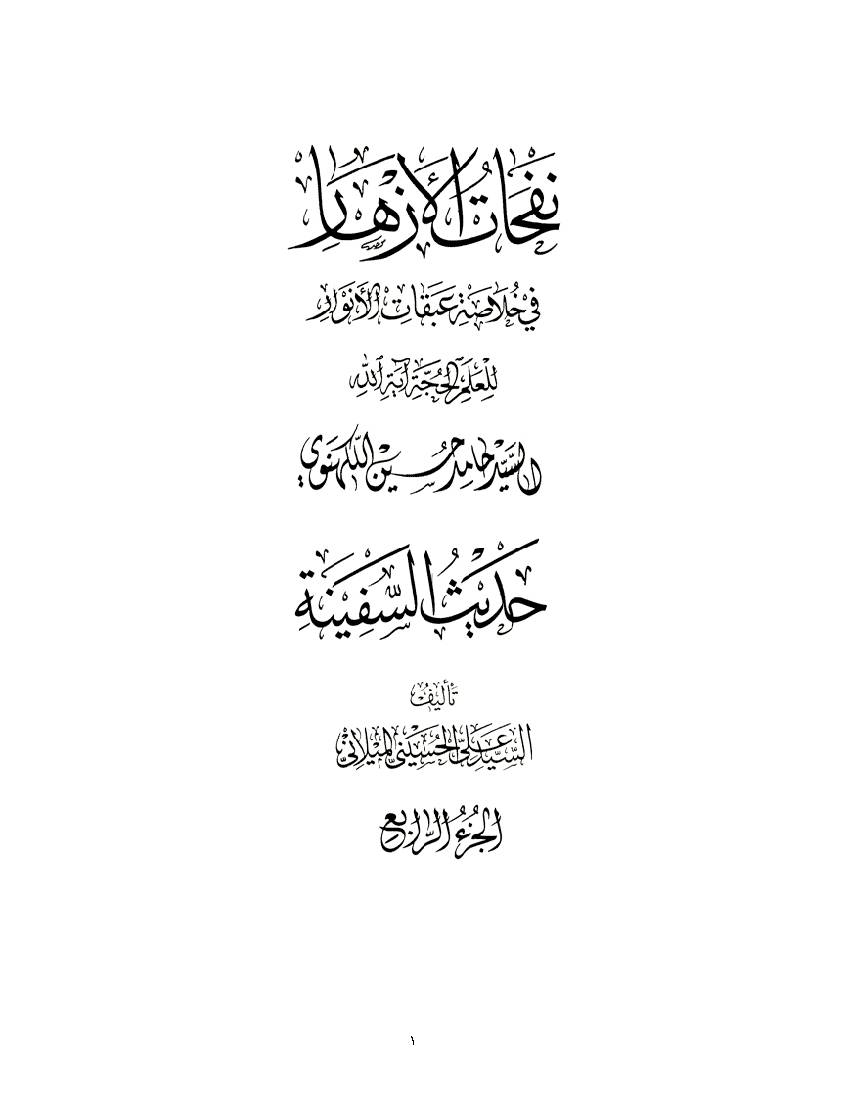 نفحات الأزهار
في خلاصة عبقات الأنوار
للعلم الحجة آية الله
السيد حامد حسين اللكهنوي
حديث السفينة
تأليف
السيد علي الحسيني الميلاني
الجزء الرابع
١